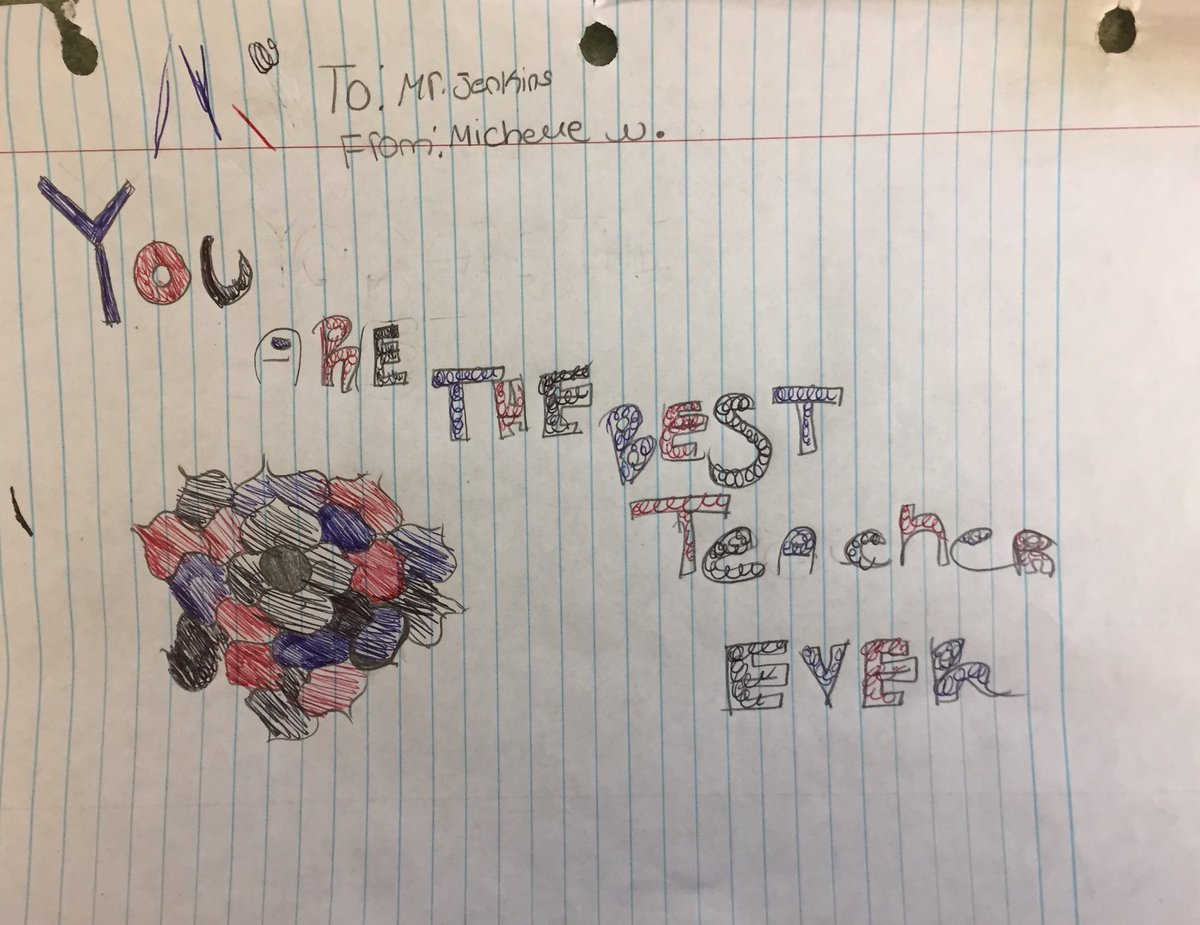 To: Mr. Jenkins
From: Michelle W.
You
ARE
THE
BEST
Teacher
EVER